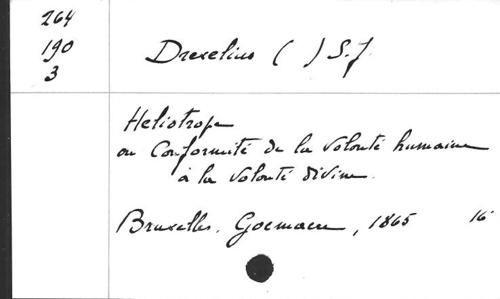 264
190
3
Drexelius ( ) S.J.
Heliotrope
ou Conformité de la volonté humaine
à la volonté divine.
Bruxelles, Goemaere, 1865 16°